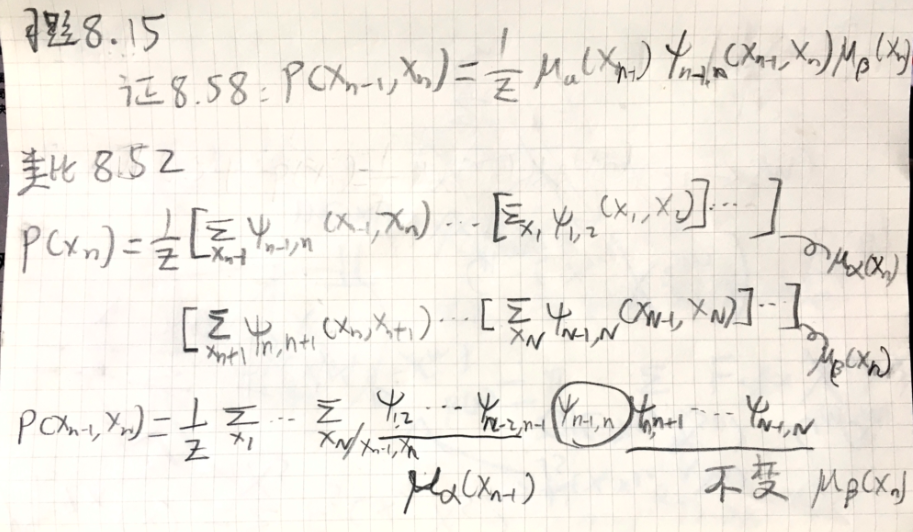 习题8.15
证8.58: P(x_{n-1}, x_n) = \frac{1}{Z} μ_α(x_{n-1}) ψ_{n-1,n}(x_{n-1}, x_n) μ_β(x_n)
类比 8.52
P(x_n) = \frac{1}{Z} [ Σ_{x_{n-1}} ψ_{n-1,n}(x_{n-1}, x_n) ⋯ [ Σ_{x_1} ψ_{1,2}(x_1, x_2) ] ⋯ ] μ_α(x_n)
[ Σ_{x_{n+1}} ψ_{n,n+1}(x_n, x_{n+1}) ⋯ [ Σ_{x_N} ψ_{N-1,N}(x_{N-1}, x_N) ] ⋯ ] μ_β(x_n)
P(x_{n-1}, x_n) = \frac{1}{Z} Σ_{x_1} ⋯ Σ_{x_N / x_{n-1}, x_n} ψ_{1,2} ⋯ ψ_{n-2,n-1} ψ_{n-1,n} ψ_{n,n+1} ⋯ ψ_{N-1,N}
μ_α(x_{n-1}) 不变 μ_β(x_n)